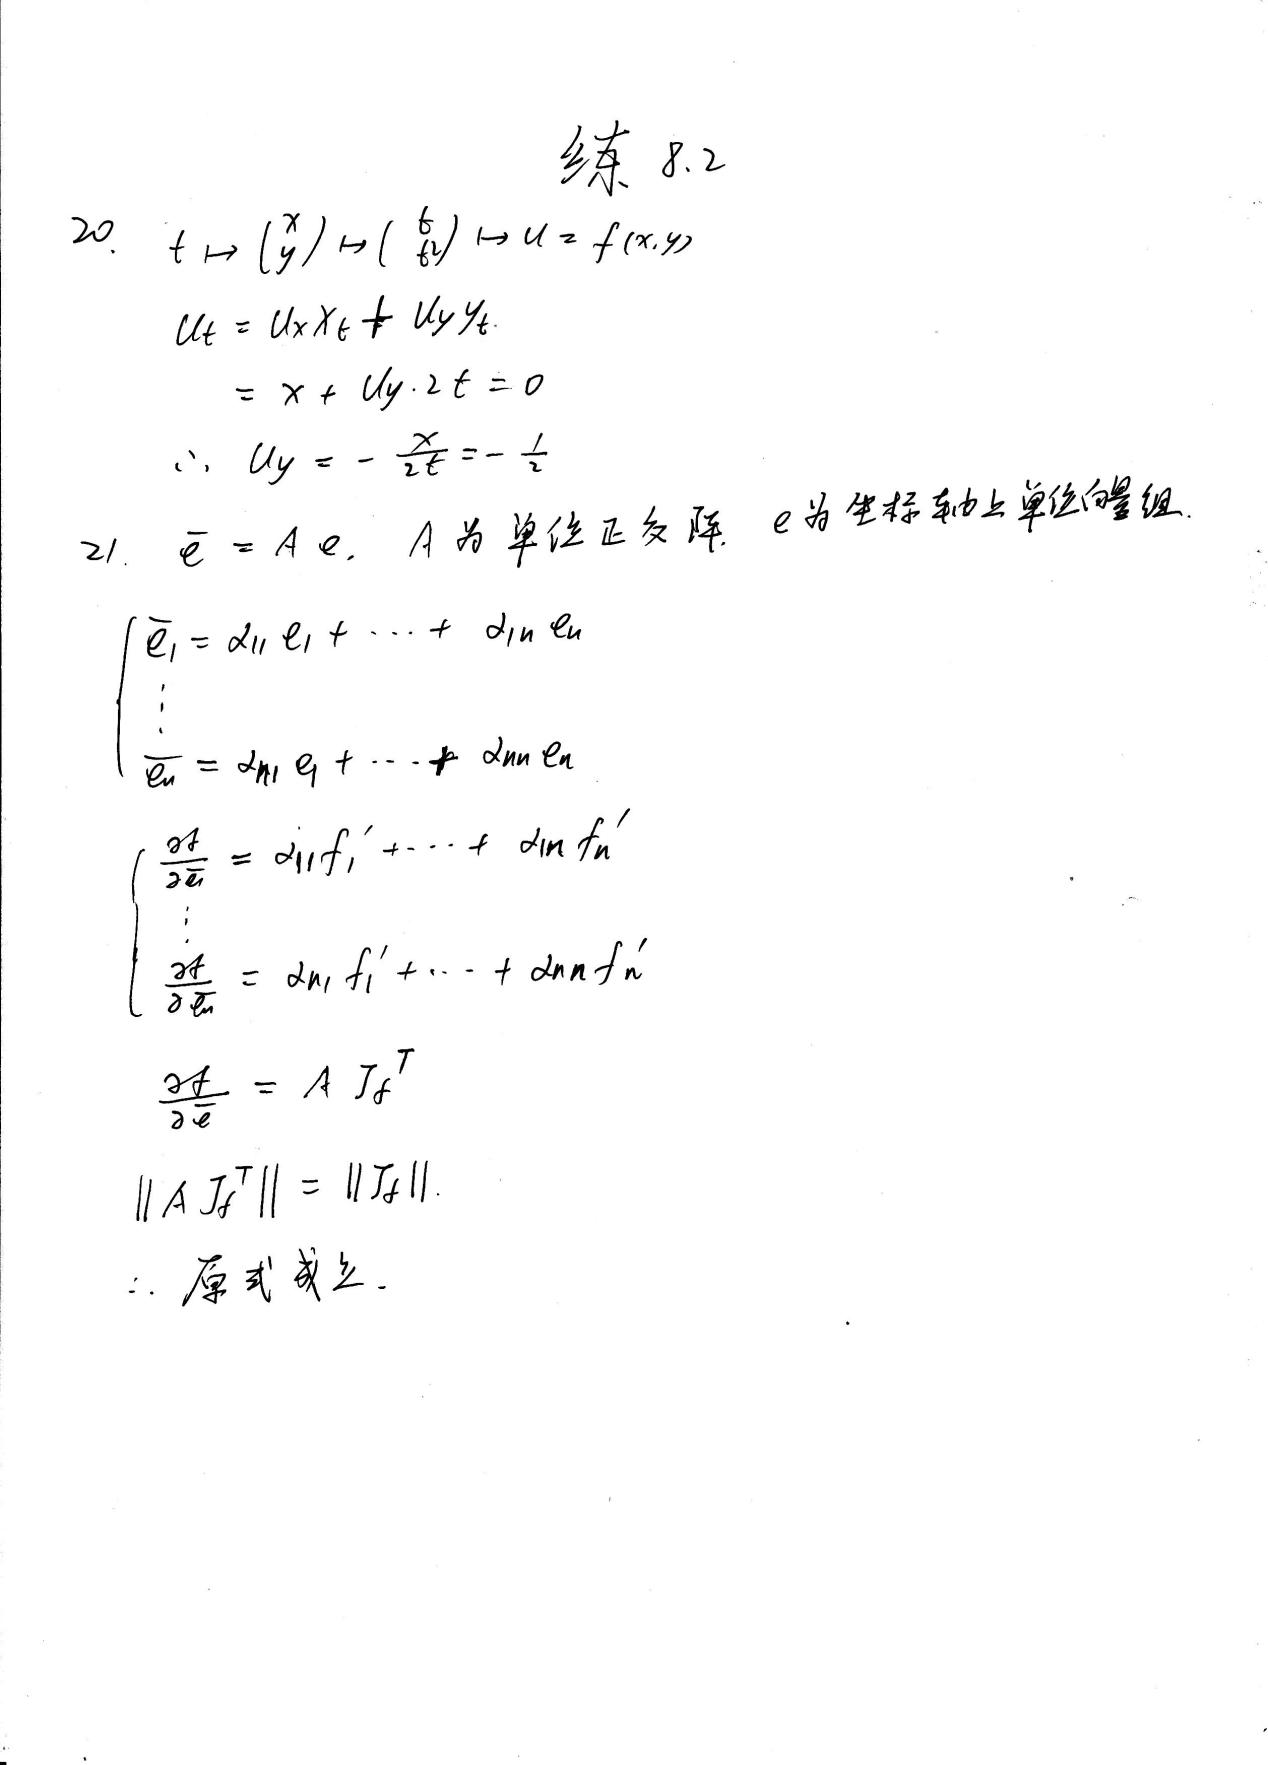 练 8.2
20. t ↦ (x y) ↦ (t t²) ↦ u = f(x,y)
u_t = u_x x_t + u_y y_t.
= x + u_y · 2t = 0
∴ u_y = - x/2t = - 1/2
21. ē = A e. A 为单位正交阵. e为坐标轴上单位向量组.
ē₁ = α₁₁ e₁ + ··· + α₁ₙ eₙ
⋮
ēₙ = αₙ₁ e₁ + ··· + αₙₙ eₙ
∂f/∂ē₁ = α₁₁ f₁' + ··· + α₁ₙ fₙ'
⋮
∂f/∂ēₙ = αₙ₁ f₁' + ··· + αₙₙ fₙ'
∂f/∂ē = A J_f^T
‖A J_f^T‖ = ‖J_f‖.
∴ 原式成立.